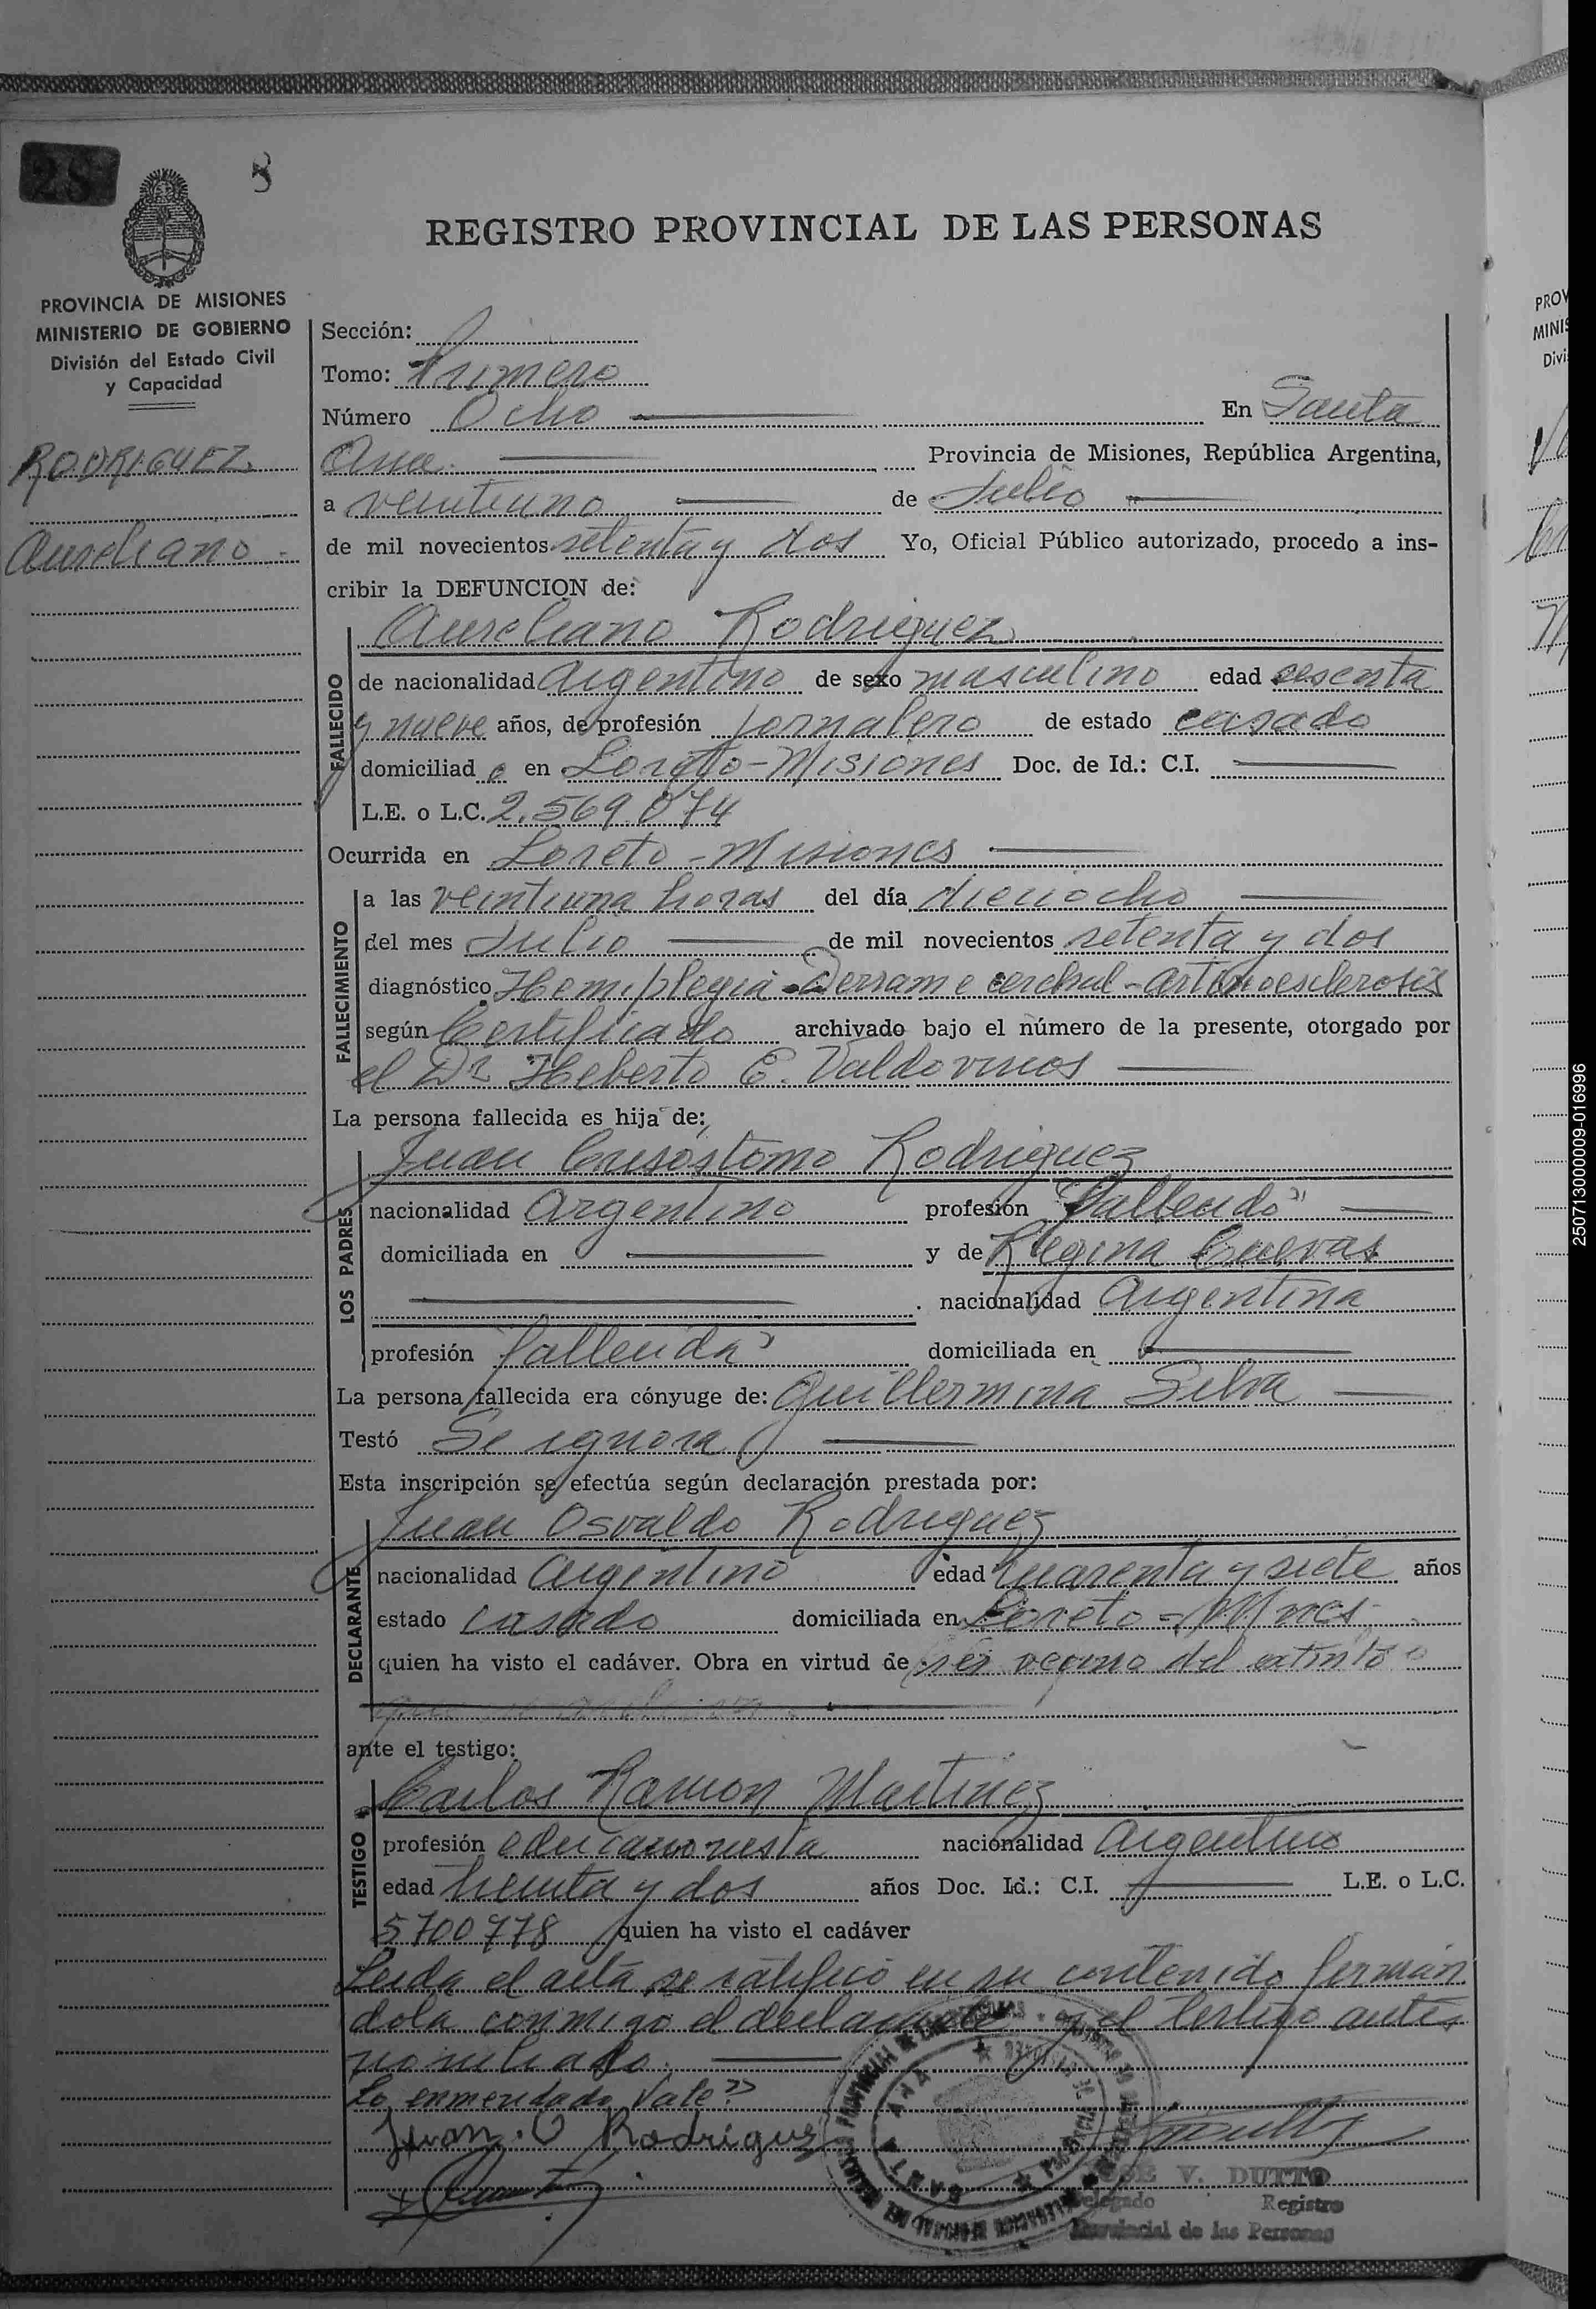 28
8
REGISTRO PROVINCIAL DE LAS PERSONAS
PROVINCIA DE MISIONES
MINISTERIO DE GOBIERNO
División del Estado Civil
y Capacidad
RODRIGUEZ
Aureliano
Sección:
Tomo: Primero
Número Ocho En Santa
Ana Provincia de Misiones, República Argentina,
a veintiuno de Julio
de mil novecientos setenta y dos Yo, Oficial Público autorizado, procedo a ins-
cribir la DEFUNCION de:
Aureliano Rodriguez
FALLECIDO
de nacionalidad Argentino de sexo masculino edad sesenta
y nueve años, de profesión Jornalero de estado casado
domiciliad o en Loreto - Misiones Doc. de Id.: C.I.
L.E. o L.C. 2.569.074
Ocurrida en Loreto - Misiones
FALLECIMIENTO
a las veintiuna horas del día dieciocho
del mes Julio de mil novecientos setenta y dos
diagnóstico Hemiplegia - Derrame cerebral -
según Certificado archivado bajo el número de la presente, otorgado por
el Dr Heberto E. Valdovinos
La persona fallecida es hija de:
LOS PADRES
Juan Crisóstomo Rodriguez
nacionalidad Argentino profesión "fallecido"
domiciliada en y de Regina Cuevas
nacionalidad Argentina
profesión "fallecida" domiciliada en
La persona fallecida era cónyuge de: Guillermina Silva
Testó Se ignora
Esta inscripción se efectúa según declaración prestada por:
DECLARANTE
Juan Osvaldo Rodriguez
nacionalidad Argentino edad cuarenta y siete años
estado casado domiciliada en Loreto - Mnes
quien ha visto el cadáver. Obra en virtud de ser vecino del extinto
ante el testigo:
TESTIGO
Carlos Ramon Martinez
profesión nacionalidad Argentino
edad treinta y dos años Doc. Id.: C.I. L.E. o L.C.
5700778 quien ha visto el cadáver
Leida el acta se ratificó en su contenido firmán
dola conmigo el declarante y el testigo antes
nominado.
Lo enmendado Vale"
Juan. O Rodriguez
SANTA ANA
JOSE V. DUTTO
Delegado Registro
Provincial de las Personas
PROV
MINIS
Divi
25071300009-016996